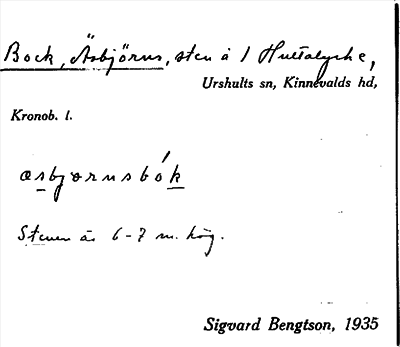 Bock, Äsbjörns, sten å 1 Hultalycke,
Urshults sn, Kinnevalds hd,
Kronob. l.
æsbjørnsbók
Stenen är 6-7 m. hög.
Sigvard Bengtson, 1935